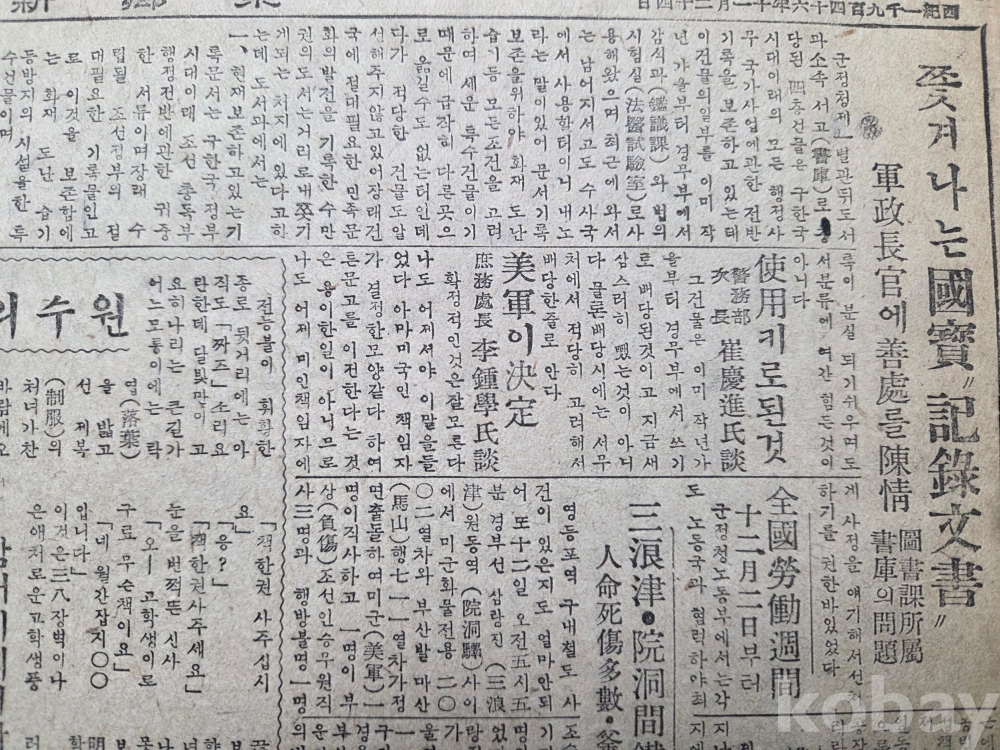 西紀一千九百四十六年十一月二十四日
쫓겨나는 "國寶" 記錄文書
軍政長官에善處를陳情
圖書課所屬
書庫의問題
군정청제一별관뒤도서
과소속 서고(書庫)로 충
당된 四층건물은 구한국
시대이래의 모든 행정사
무 국가사업에관한 전반
기록을 보존하고 있는데
이건물의일부를 이미 작
년 가을부터 경무부에서
감식과(鑑識課)와 법의
시험실(法醫試驗室)로사
용해왔으며 최근에 와서
는 남어지고도 수사국
에서 사용할터이니 내노
라는 말이있어 문서기록
보존을위하야 화재 도난
습기등 모든조건을 고려
하여 세운 특수건물이기
때문에 급작히 다른곳으
로 옮길수도 없는터인데
다가 적당한 건물도알
선해주지않고있어장래건
국에 절대필요한 민족문
화의발전을 기록한 수만
권의 도서는거리로내쫓기
게되는 처지에 있다고하
는데 도서과에서는
一、현재보존하고있는기
록문서는 구한국정부
시대이때 조선 총독부
행정전반에관한 귀중
한 서류이며장래 수
립될 조선정부의 절
대필요한 기록물인고
로 이것을 보존함에
는 화재 도난 습기
등방지의 시설을한 특
수건물이며
록이 분실 되기쉬우며도
서분류에 여간 힘든것이
아니다
使用키로된것
警務部次長 崔慶進氏談
그건물은 이미 작년가
을부터 경무부에서 쓰기
로 배당된것이고 지금새
삼스러히 뺐는것이 아니
다 물론배당시에는 서무
처에서 적당히 고려해서
배당한줄로 안다
美軍이决定
庶務處長 李鍾學氏談
확정적인것은잘모른다
나도 어제서야 이말을들
었다 아마미국인 책임자
가 결정한모양같다 하여
튼문고를 이전한다는 것
은 용이한일이 아니므로
나도 어제 미인책임자에
게 사정을 얘기해서선처
하기를 권한바있었다
全國勞働週間
十二月二日부터
군정청노동부에서는각
도 노동국과 협력하야최
三浪津•院洞間
人命死傷多數•
영등포역 구내철도 사
건이 있은지도 얼마안되
어 또十二일 오전五시五
분 경부선 삼랑진(三浪
津)원동역(院洞驛)사이
에서 미군화물전용 二〇
〇二열차와 부산발 마산
(馬山)행七一一열차가정
면충돌하여미군(美軍)一
명이직사하고 一명이 부
상(負傷)조선인승무원직
사三명과 행방불명一명의
원수의
전등불이 휘황한
종로 뒷거리에는 아
직도 「짜즈」소리요
란한데 달빛만이 고
요히나리는 큰길가
어느모퉁이에는 락
엽(落葉)
을 밟고
선 제복
(制服)의
처녀가찬
바람에오
「책한권 사주십시
요」
「응?」
「책한권사주세요」
눈을 번쩍뜬 신사
「오ㅣ 고학생이로
구료 무슨책이요」
「네 월간잡지〇〇
입니다」
이것은三八장벽이나
은애처로운고학생풍
kobay